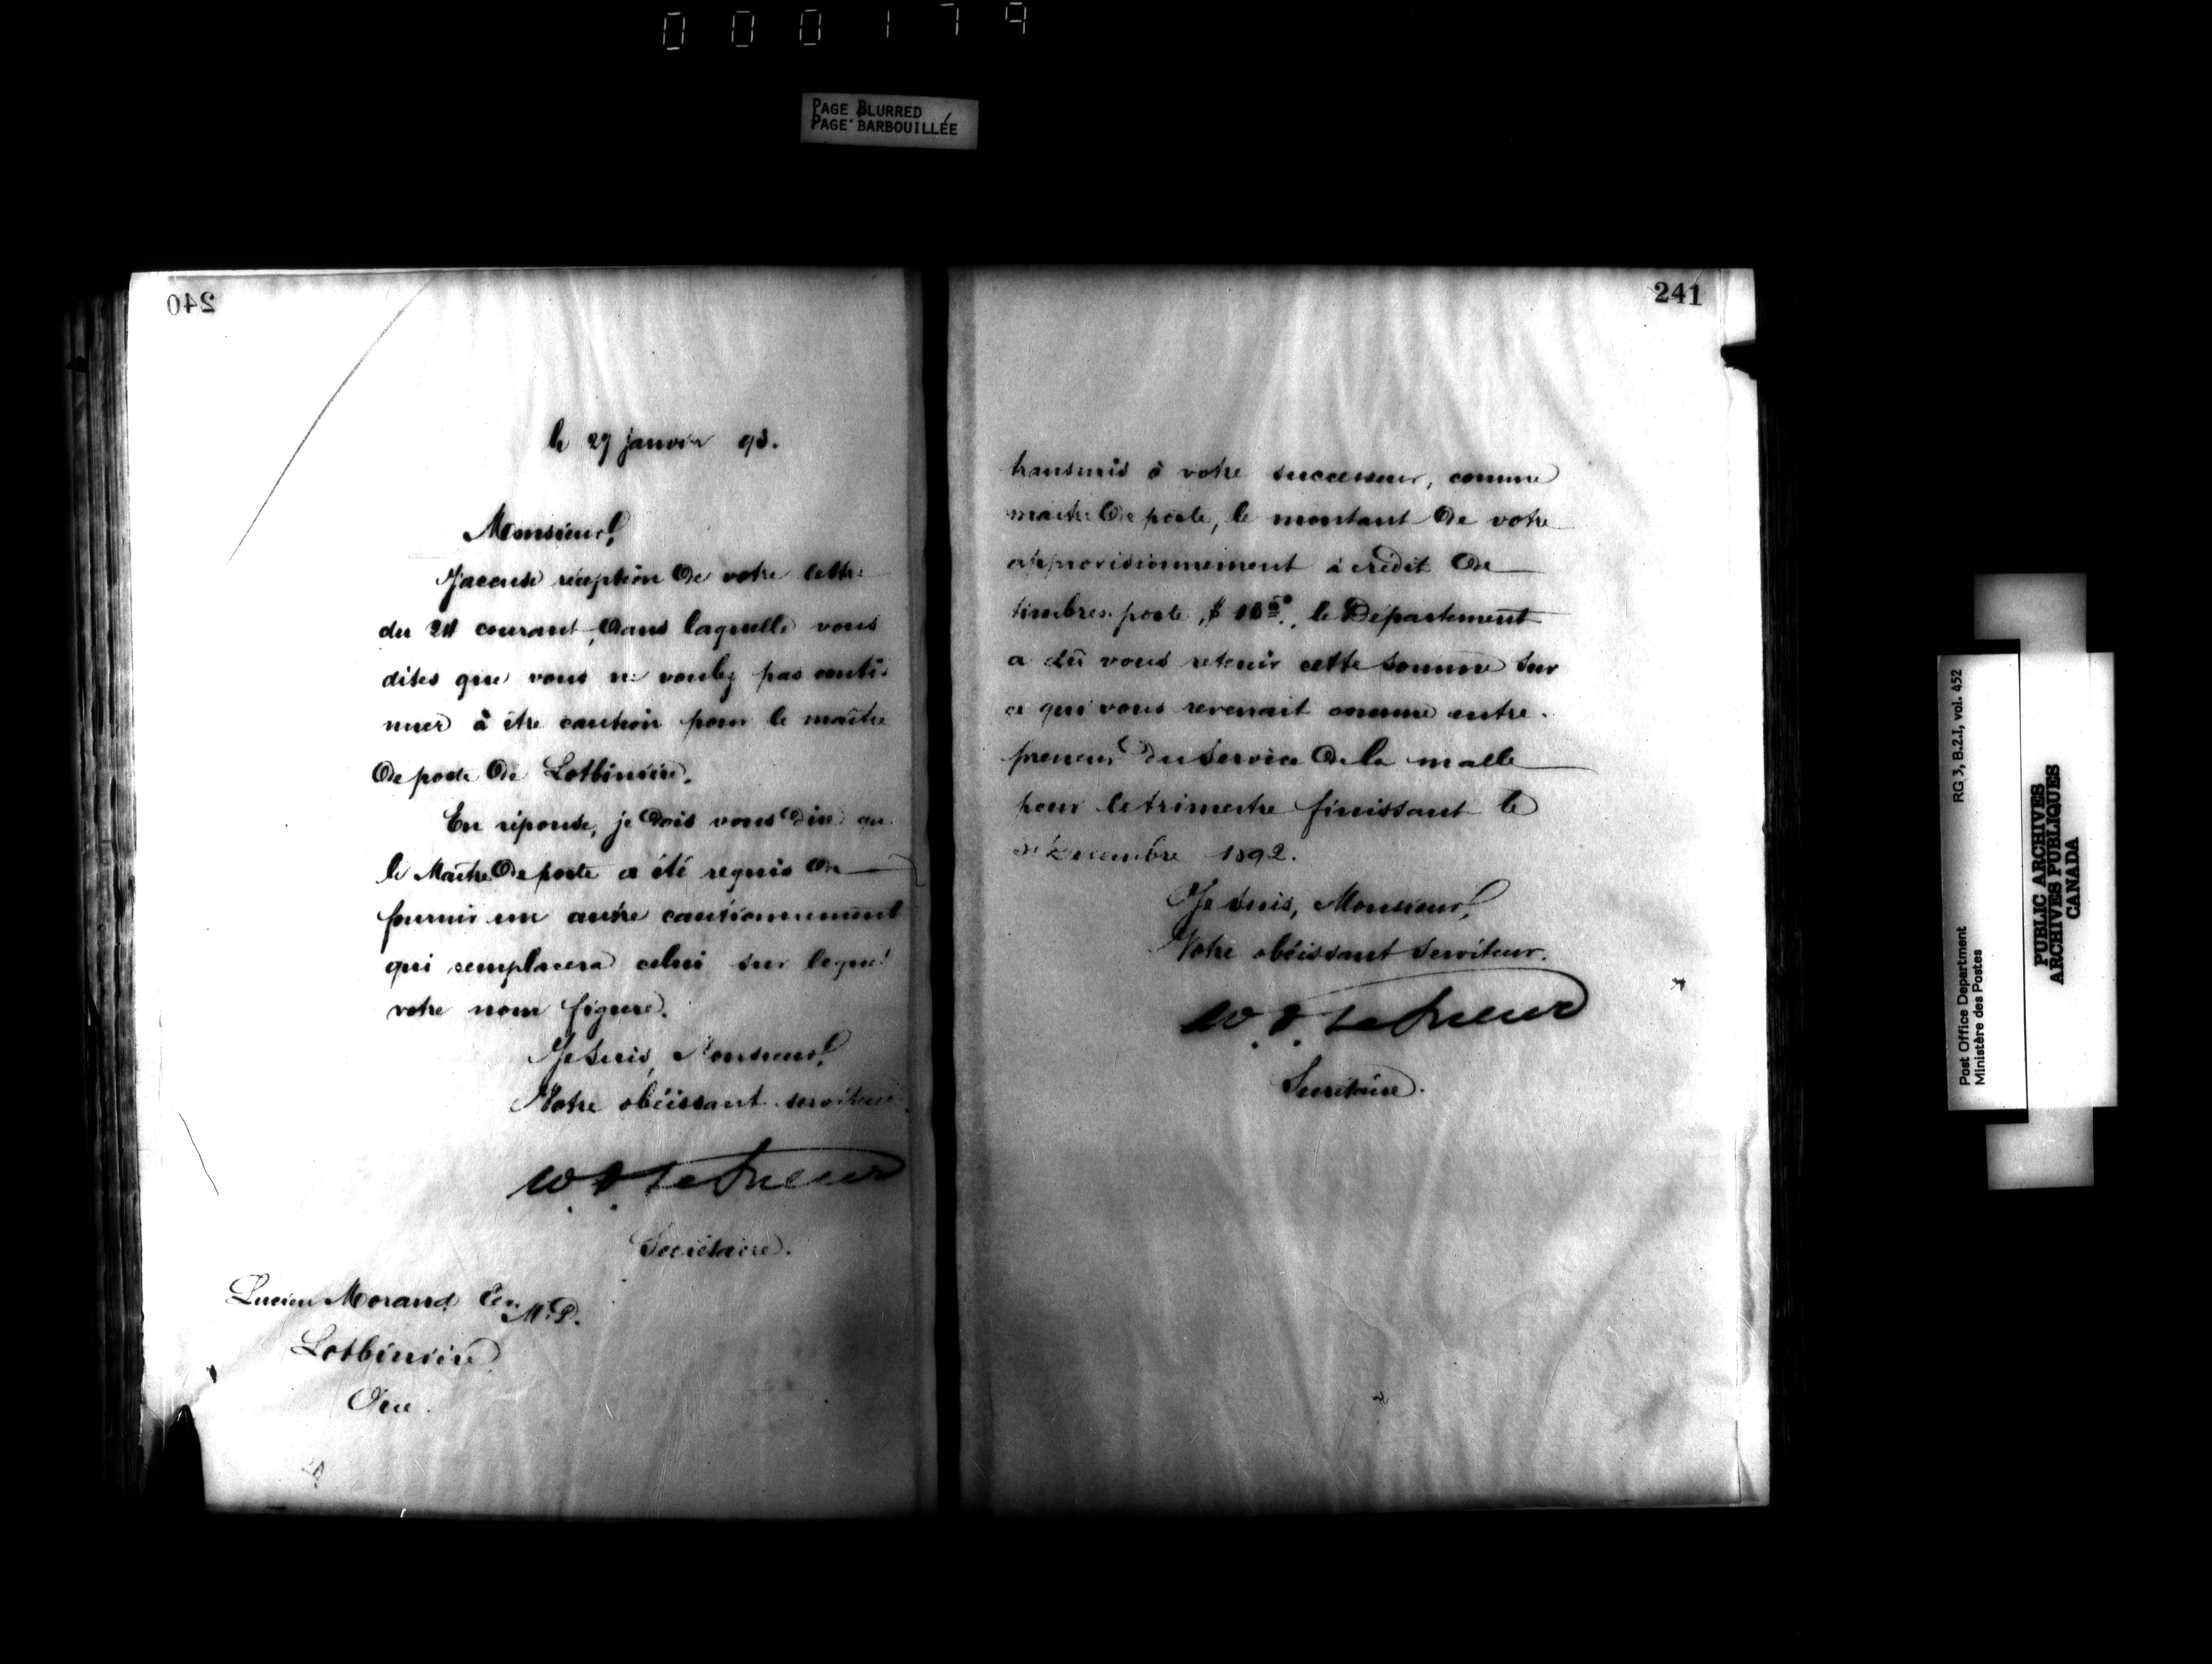 000179
PAGE BLURRED
PAGE BARBOUILLÉE
240
le 27 janvier 93.
Monsieur,
J'accuse réception de votre lettre
du 24 courant, dans laquelle vous
dites que vous ne voulez pas conti-
nuer à être caution pour le maître
de poste de Lotbinière.
En réponse, je dois vous dire que
le Maître de poste a été requis de
fournir un autre cautionnement
qui remplacera celui sur lequel
votre nom figure.
Je suis, Monsieur,
Votre obéissant serviteur
W. D. LeSueur
Secrétaire.
Lucien Morand Ecr. M.D.
Lotbinière
Que.
241
transmis à votre successeur, comme
maître de poste, le montant de votre
approvisionnement à crédit de
timbres-poste, le Département
a dû vous retenir cette somme sur
ce qui vous revenait comme entre-
preneur du service de la malle
pour le trimestre finissant le
31 décembre 1892.
Je suis, Monsieur,
Votre obéissant serviteur.
W. D. LeSueur
Secrétaire.
RG 3, B.2.1, vol. 452
Post Office Department
Ministère des Postes
PUBLIC ARCHIVES
ARCHIVES PUBLIQUES
CANADA